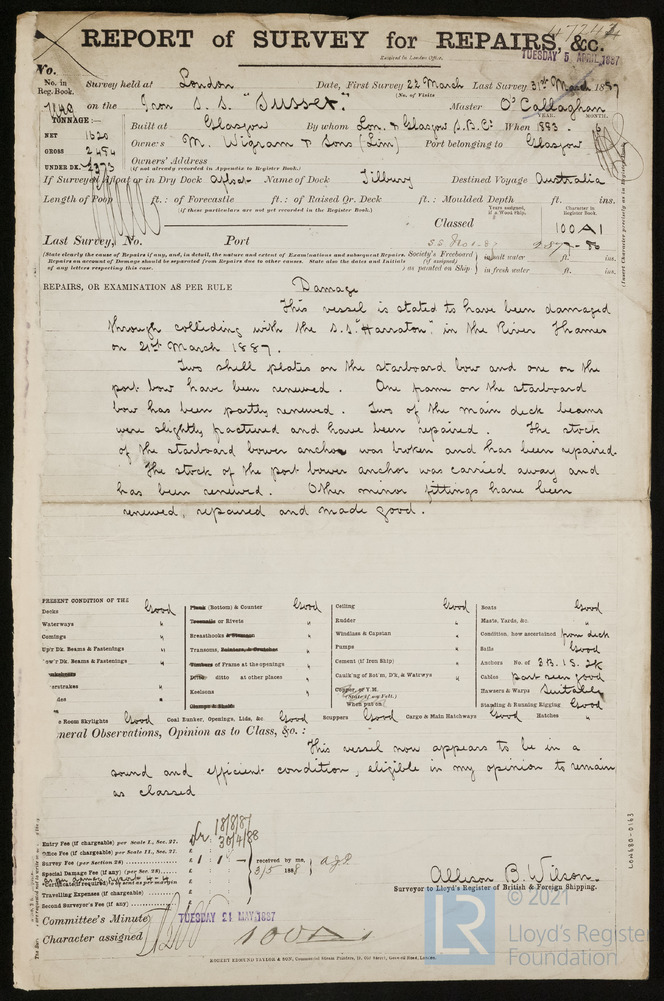 47244
REPORT of SURVEY for REPAIRS, &c.
Received in London Office.
TUESDAY 5 APRIL 1887
No.
No. in Reg. Book. Survey held at London Date, First Survey 22 March Last Survey 31st March 1887
(No. of Visits
1140 on the Iron S.S. "Sussex." Master O'Callaghan
TONNAGE:—
YEAR. MONTH.
NET 1620 Built at Glasgow By whom Lon. & Glasgow S.B.Co When 1883 . 6
GROSS 2494 Owners M. Wigram & Sons (Lim) Port belonging to Glasgow
UNDER DK. 2373 Owners' Address
(if not already recorded in Appendix to Register Book.)
If Surveyed Afloat or in Dry Dock Afloat Name of Dock Tilbury Destined Voyage Australia
Length of Poop ft.: of Forecastle ft.: of Raised Qr. Deck ft.: Moulded Depth ft. ins.
(if these particulars are not yet recorded in the Register Book.)
Years assigned, if a Wood Ship. Character in Register Book.
Classed 100A1
Last Survey, No. Port
(State clearly the cause of Repairs if any, and, in detail, the nature and extent of Examinations and subsequent Repairs.
Repairs on account of Damage should be separated from Repairs due to other causes. State also the dates and Initials
of any letters respecting this case.
Society's Freeboard (if assigned) as painted on Ship
in salt water ft. ins.
in fresh water ft. ins.
(Insert Character precisely as in Register Book)
REPAIRS, OR EXAMINATION AS PER RULE Damage
This vessel is stated to have been damaged
through colliding with the S.S. "Harraton" in the River Thames
on 21st March 1887.
Two shell plates on the starboard bow and one on the
port bow have been renewed. One frame on the starboard
bow has been partly renewed. Two of the main deck beams
were slightly fractured and have been repaired. The stock
of the starboard bower anchor was broken and has been repaired.
The stock of the port bower anchor was carried away and
has been renewed. Other minor fittings have been
renewed, repaired and made good.
PRESENT CONDITION OF THE
Decks Good
Waterways "
Comings "
Up'r Dk. Beams & Fastenings "
Low'r Dk. Beams & Fastenings "
Plank (Bottom) & Counter Good
Treenails or Rivets "
Breasthooks & Stemson "
Transoms, Pointers, & Crutches "
Timbers of Frame at the openings "
Ditto ditto at other places "
Keelsons "
Clamps & Shelfs
Ceiling Good
Rudder "
Windlass & Capstan "
Pumps "
Cement (if Iron Ship) "
Caulk'ng of Bot'm, D'k, & Waterw'ys "
Copper, or Y.M.
(State if any Felt.)
When put on
Boats Good
Masts, Yards, &c. "
Condition, how ascertained from deck
Sails Good
Anchors No. of 3B. 1S. 2K
Cables part seen good
Hawsers & Warps Suitable
Standing & Running Rigging Good
e Room Skylights Good Coal Bunker, Openings, Lids, &c Good Scuppers Good Cargo & Main Hatchways Good Hatches "
neral Observations, Opinion as to Class, &c. :
This vessel now appears to be in a
sound and efficient condition, eligible in my opinion to remain
as classed
Entry Fee (if chargeable) per Scale I., Sec. 27.
Office Fee (if chargeable) per Scale II., Sec. 27.
Survey Fee (per Section 28)
Special Damage Fee (if any) (per Sec. 28)
Certificate (if required) to be sent as per margin
Travelling Expenses (if chargeable)
Second Surveyor's Fee (if any)
received by me,
3/5 1888
Allison B. Wilson.
Surveyor to Lloyd's Register of British & Foreign Shipping.
Committee's Minute TUESDAY 21 MAY 1887
Character assigned 100A1
ROBERT EDMUND TAYLOR & SON, Commercial Steam Printers, 19, Old Street, Goswell Road, London.
LON680-0163
LR
© 2021
Lloyd's Register
Foundation